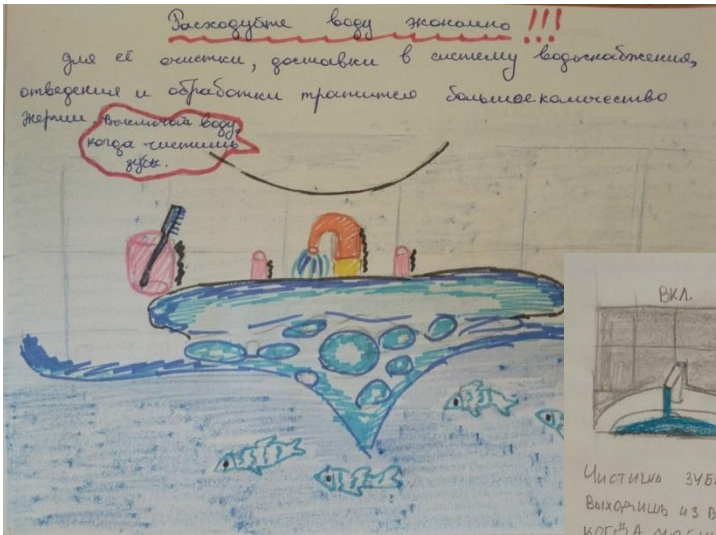 Расходуйте воду экономно!!!
для её очистки, доставки в систему водоснабжения,
отведения и обработки тратится большое количество
энергии.
Выключай воду,
когда чистишь
зубы.
ВКЛ.
Чистишь зуб
Выходишь из в
когда